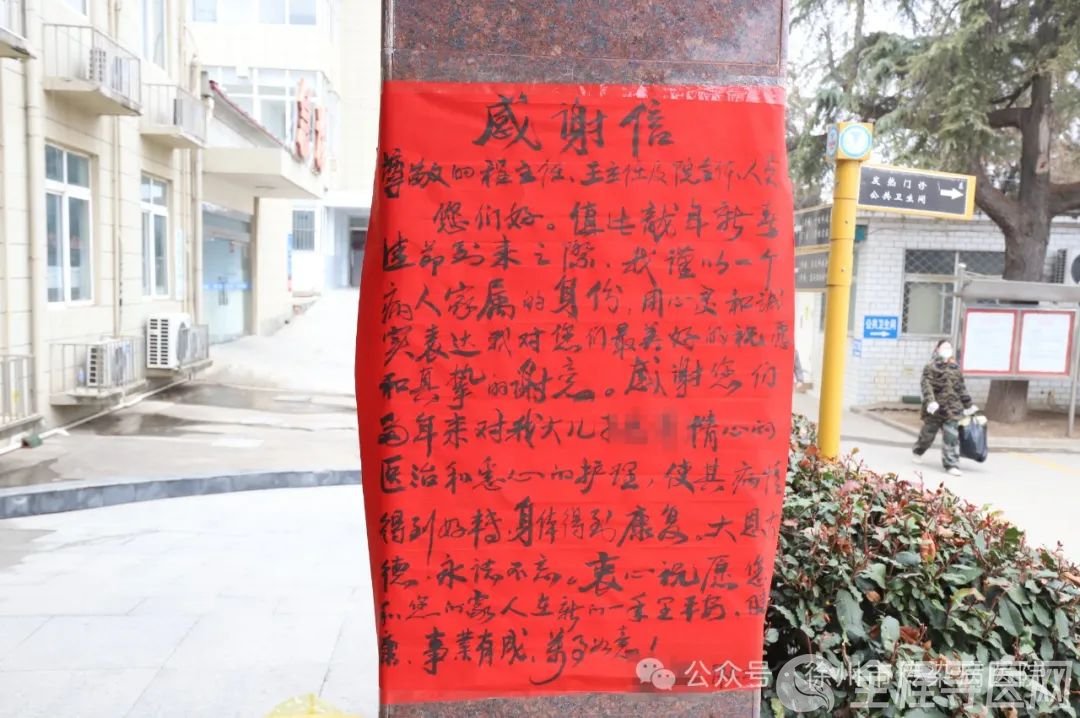 感谢信
尊敬的程主任、王主任及院全体人员
您们好。值此龙年新春
佳节到来之际，我谨以一个
病人家属的身份，用心灵和诚
实表达我对您们最美好的祝愿
和真挚的谢意。感谢您们
多年来对我大儿子 精心的
医治和悉心的护理，使其病情
得到好转身体得到康复。大恩大
德，永志不忘。衷心祝愿您
和您的家人在新的一年里平安、
康，事業有成，万事如意！
发热门诊
公共卫生间
公共卫生间
公众号·徐州市传染病医院